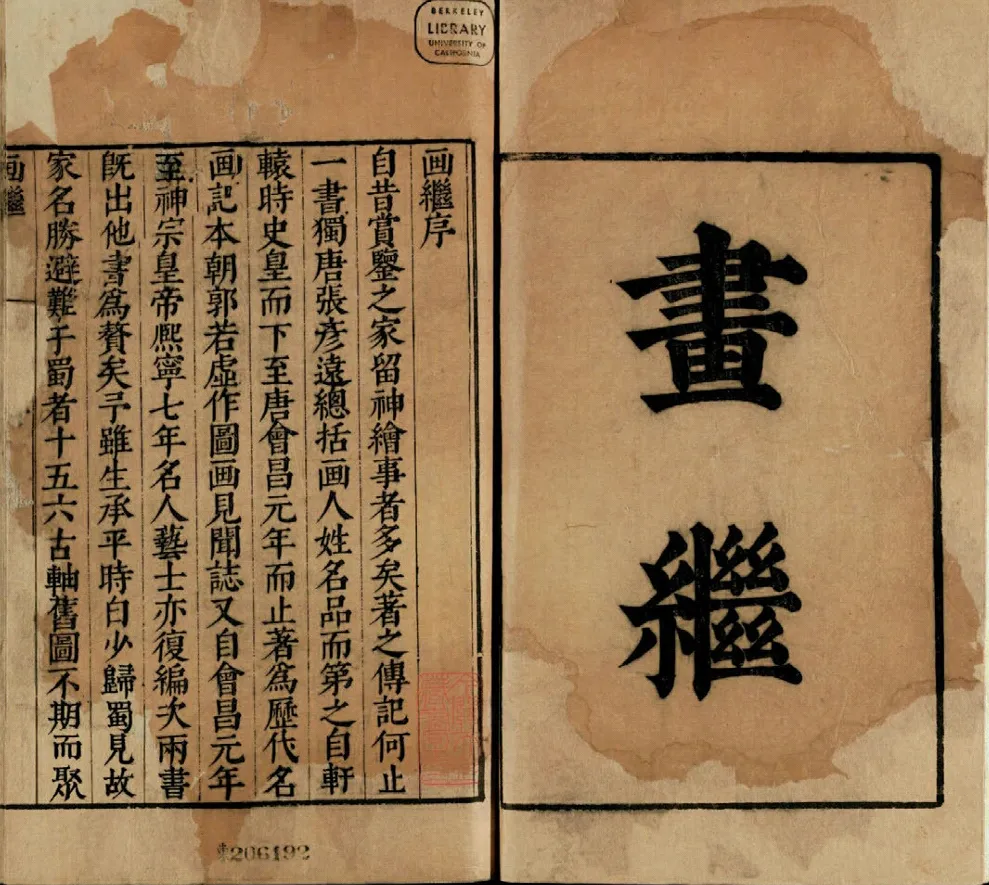 畫繼
BERKELEY
LIBRARY
UNIVERSITY OF
CALIFORNIA
画繼序
自昔賞鑒之家留神繪事者多矣著之傳記何止
一書獨唐張彥遠總括画人姓名品而第之自軒
轅時史皇而下至唐會昌元年而止著爲歷代名
画記本朝郭若虛作圖画見聞誌又自會昌元年
至神宗皇帝熙寧七年名人藝士亦復編次兩書
旣出他書爲贅矣予雖生承平時自少歸蜀見故
家名勝避難于蜀者十五六古軸舊圖不期而聚
画繼
206192